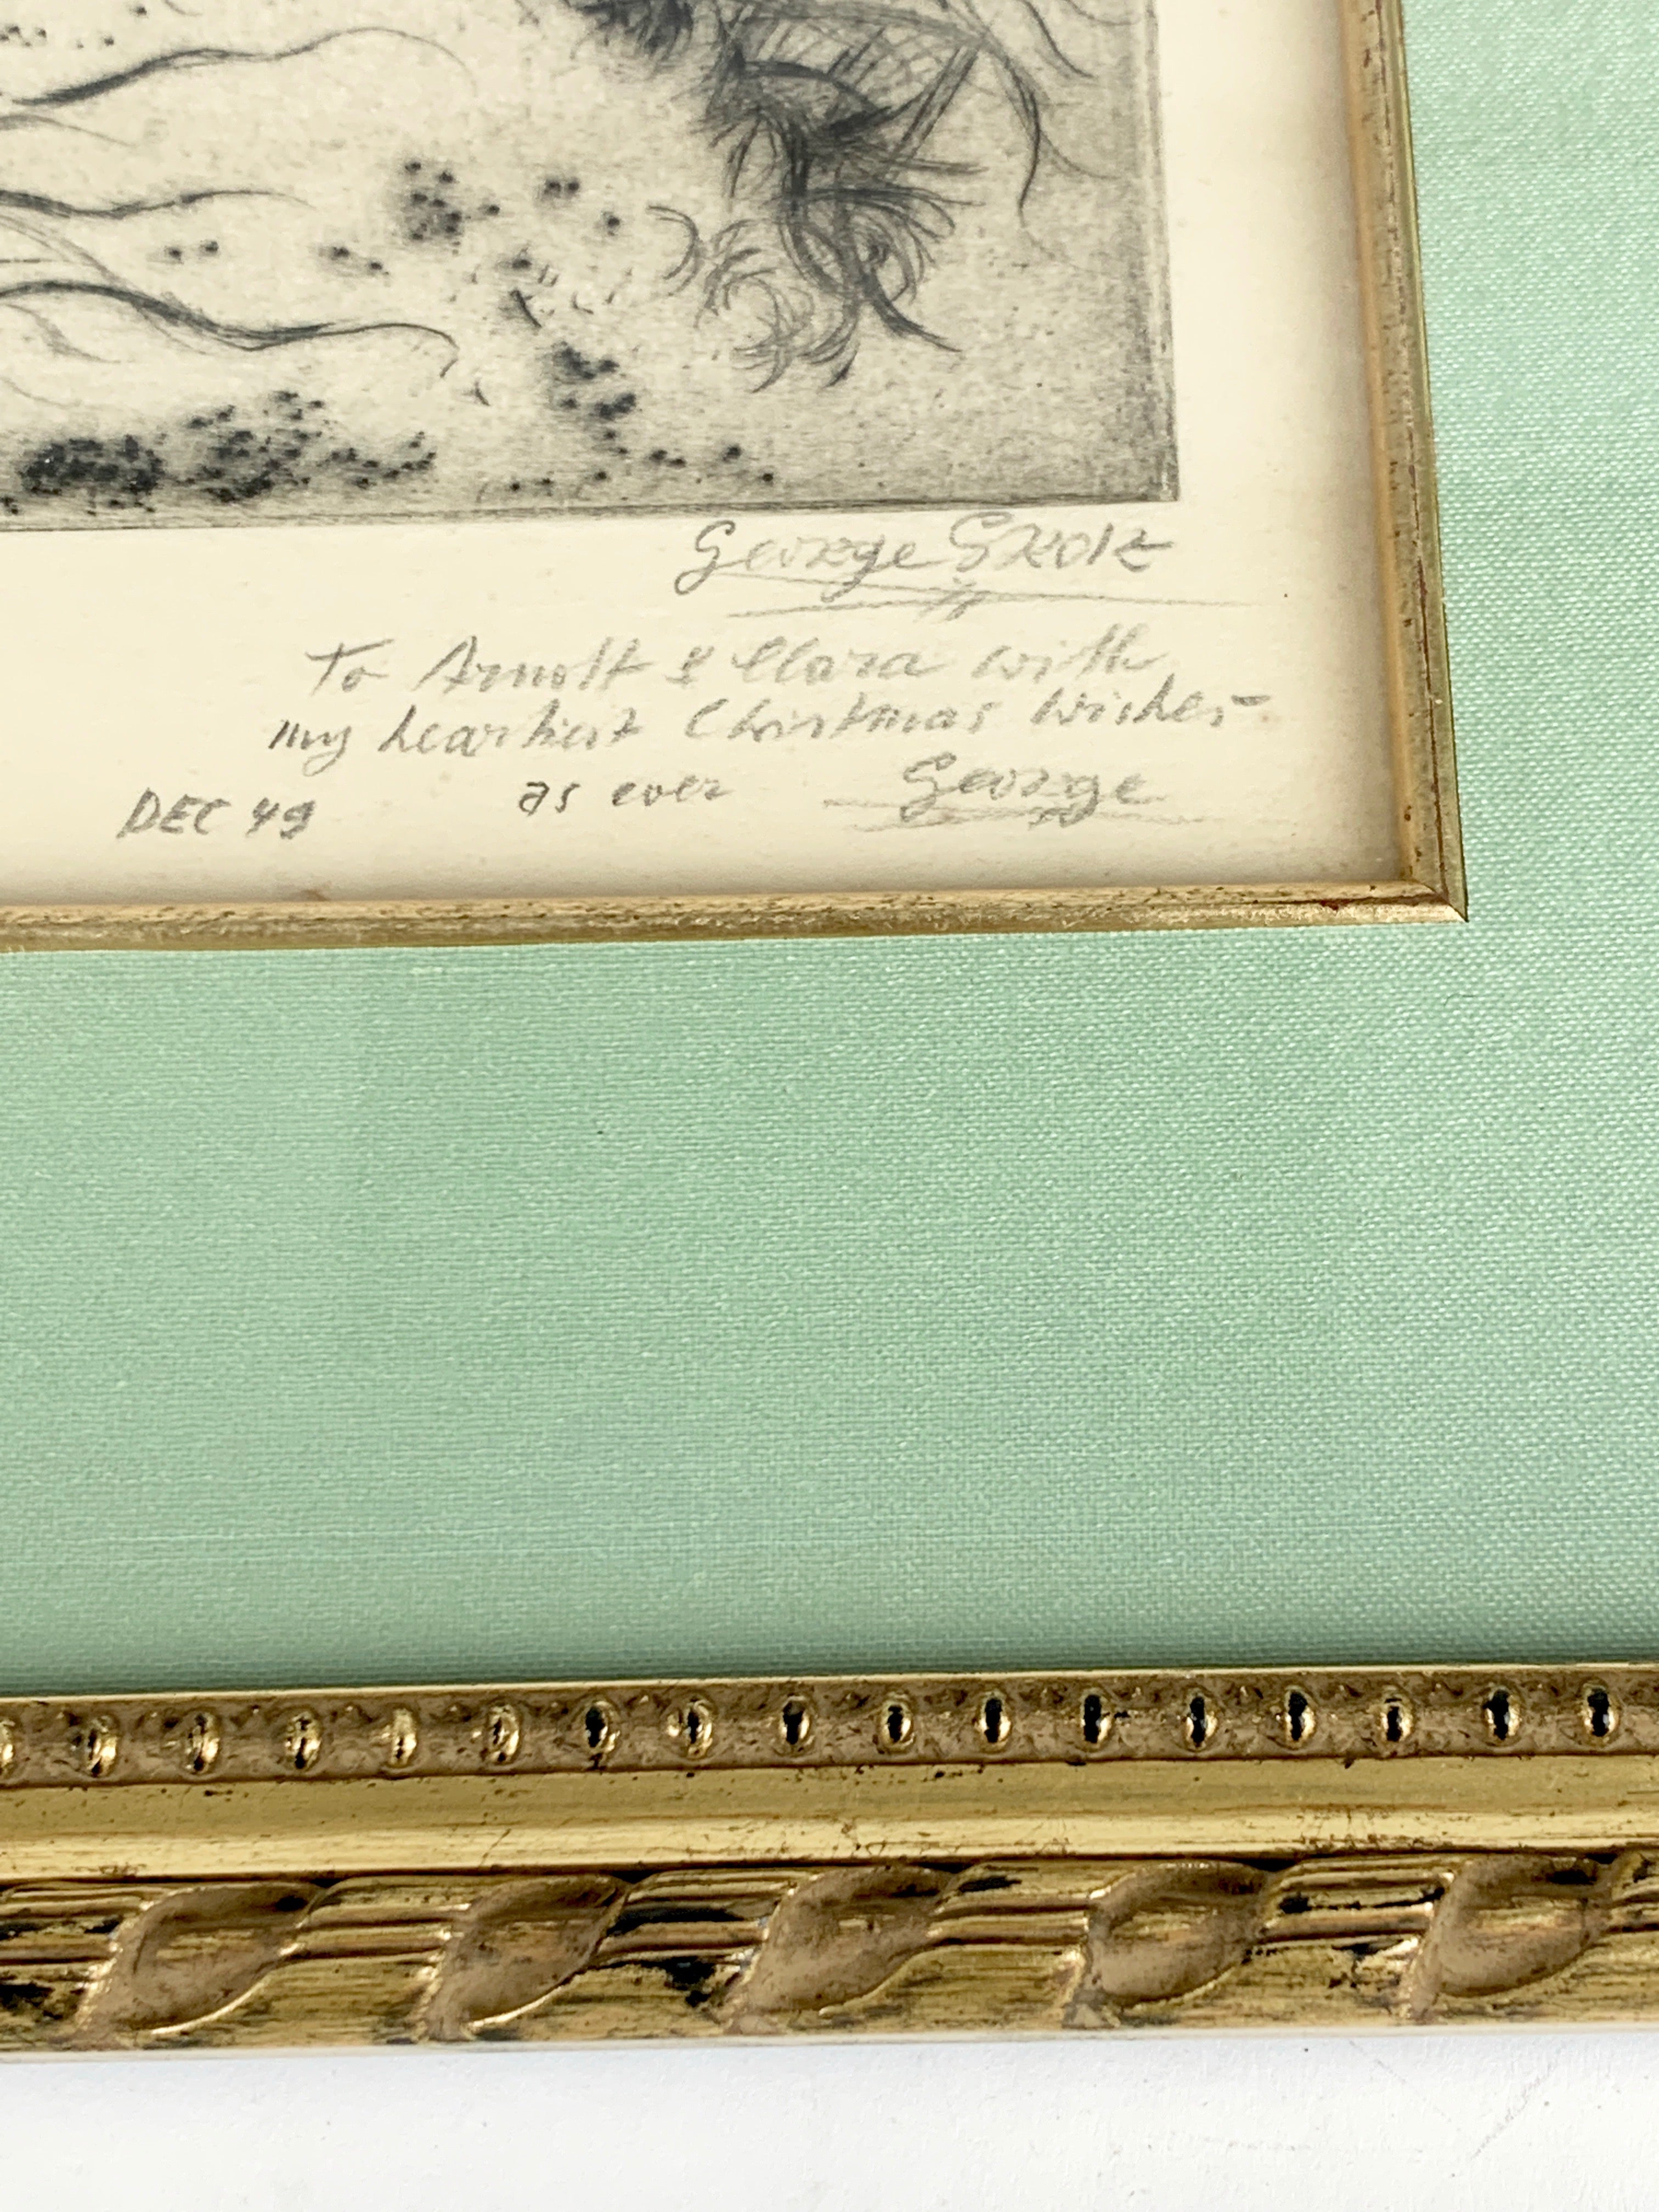 George Grosz
To Arnolt & Clara with
my heartiest Christmas Wishes
as ever George
DEC 49